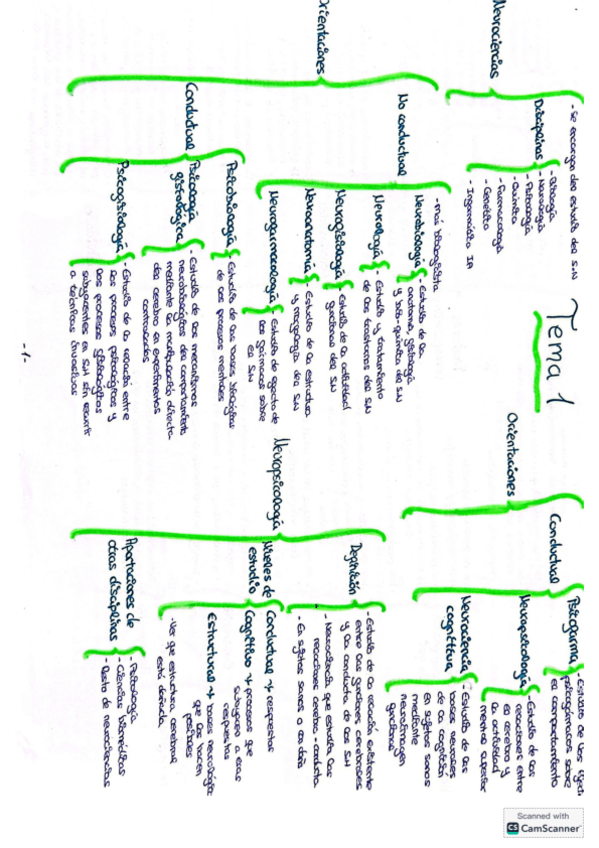 Tema 1
Neurociencias
- Se encarga del estudio del S.N
Disciplinas
- Biología
- Neurología
- Patología
- Química
- Farmacología
- Genética
- Ingeniería IA
Orientaciones
No conductual
- más biologicista
Neurobiología - Estudio de la
anatomía, fisiología
y bioquímica del SN
Neurología - Estudio y tratamiento
de los trastornos del SN
Neurofisiología - Estudio de la actividad
funcional del SN
Neuroanatomía - Estudio de la estructura
y morfología del SN
Neurofarmacología - Estudio de efecto de
los fármacos sobre
el SN
Conductual
Psicobiología - Estudio de las bases biológicas
de los procesos mentales
Psicología
fisiológica
- Estudio de los mecanismos
neurobiológicos del comportamiento
mediante la manipulación directa
del cerebro en experimentos
controlados
Psicofisiología - Estudio de la relación entre
los procesos psicológicos y
los procesos fisiológicos
subyacentes en SN sin recurrir
a técnicas invasivas
-1-
Orientaciones
Conductual
Psicofarma - Estudio de los
psicofármacos sobre
el comportamiento
Neuropsicología - Estudio de las
relaciones entre
el cerebro y
la actividad
mental superior
Neurociencia
cognitiva
- Estudio de las
bases neurales
de la cognición
En sujetos sanos
mediante
neuroimagen
funcional
Neuropsicología
Definición
- Estudio de la relación existente
entre las funciones cerebrales
y la conducta de los SH
- Neurociencia que estudia las
relaciones cerebro-conducta
- En sujetos sanos o con daño
Niveles de
estudio
Conductual → respuestas
Cognitivo → procesos que
subyacen a esas
respuestas
Estructural → bases neurológicas
que las hacen
posibles
- Ver que estructura cerebral
está dañada
Aportaciones de
otras disciplinas
- Psicología
- Ciencias biomédicas
- Resto de neurociencias
Scanned with
CS CamScanner